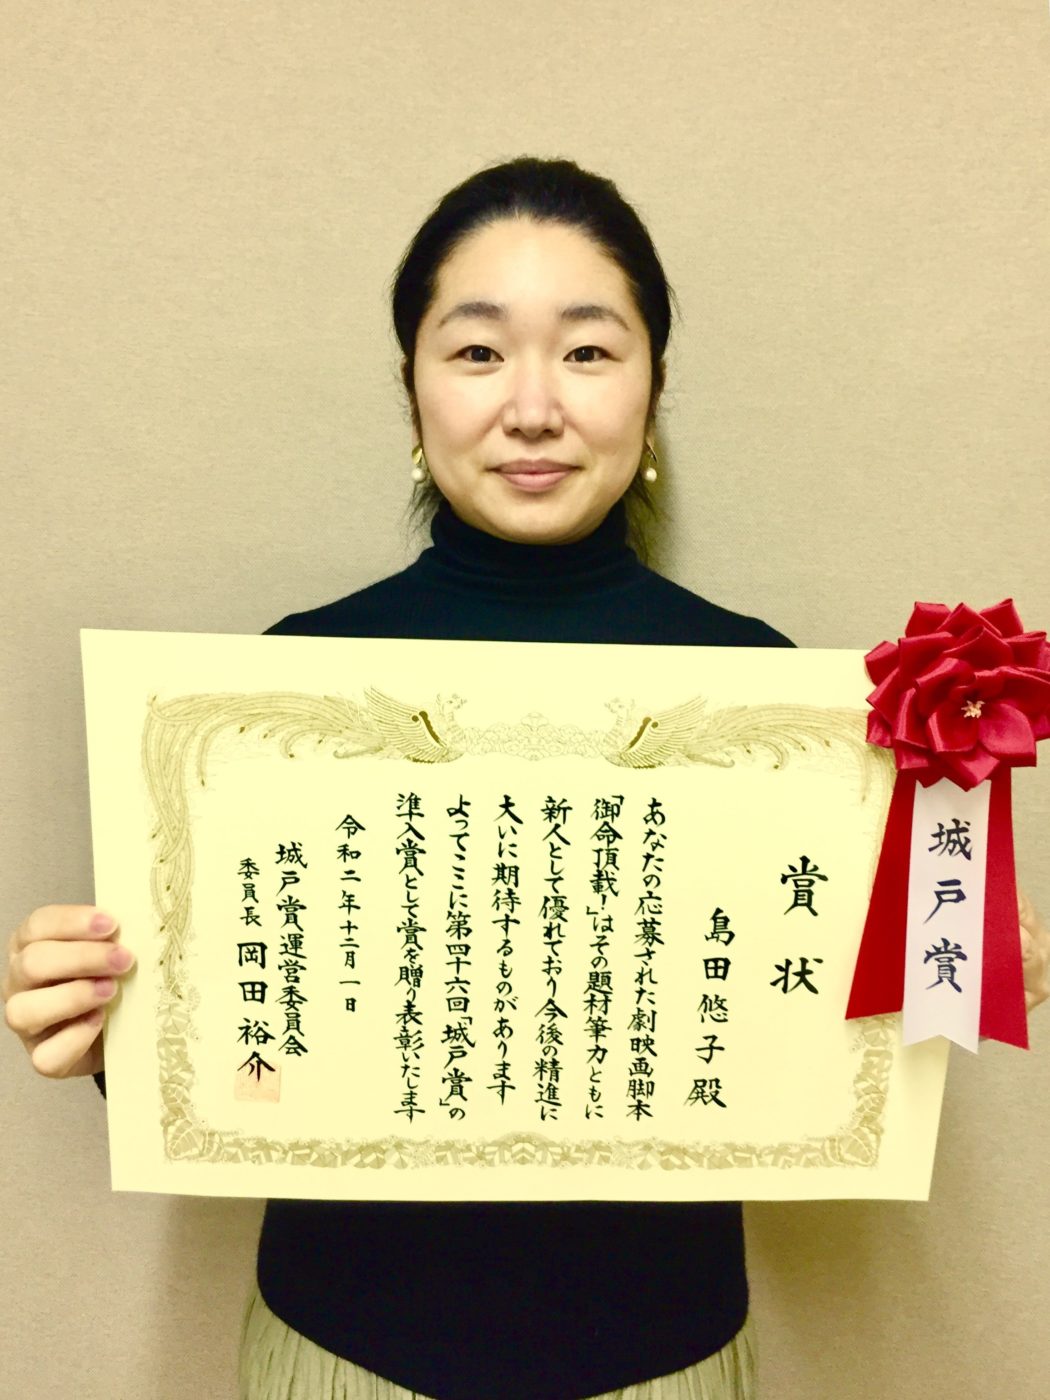 賞状
島田悠子殿
あなたの応募された劇映画脚本
「御命頂載!」はその題材筆力ともに
新人として優れており今後の精進に
大いに期待するものがあります
よってここに第四十六回「城戸賞」の
準入賞として賞を贈り表彰いたします
令和二年十二月一日
城戸賞運営委員会
委員長 岡田裕介
城戸賞